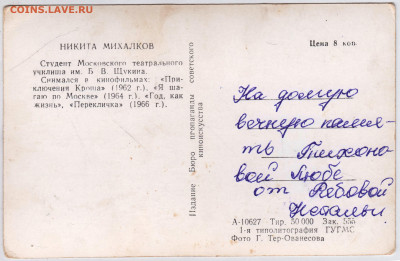 СОИН.ORG.RU
НИКИТА МИХАЛКОВ
Студент Московского театрального
училища им. Б. В. Щукина.
Снимался в кинофильмах: «При-
ключения Кроша» (1962 г.), «Я ша-
гаю по Москве» (1964 г.), «Год, как
жизнь», «Перекличка» (1966 г.).
Издание Бюро пропаганды советского
киноискусства
Цена 8 коп.
На долгую
вечную памя-
ть Тихоно
вой Любе
от Рябовой
Натальи
А-10627 Тир. 50 000 Зак. 555
1-я типолитография ГУГМС
Фото Г. Тер-Ованесова